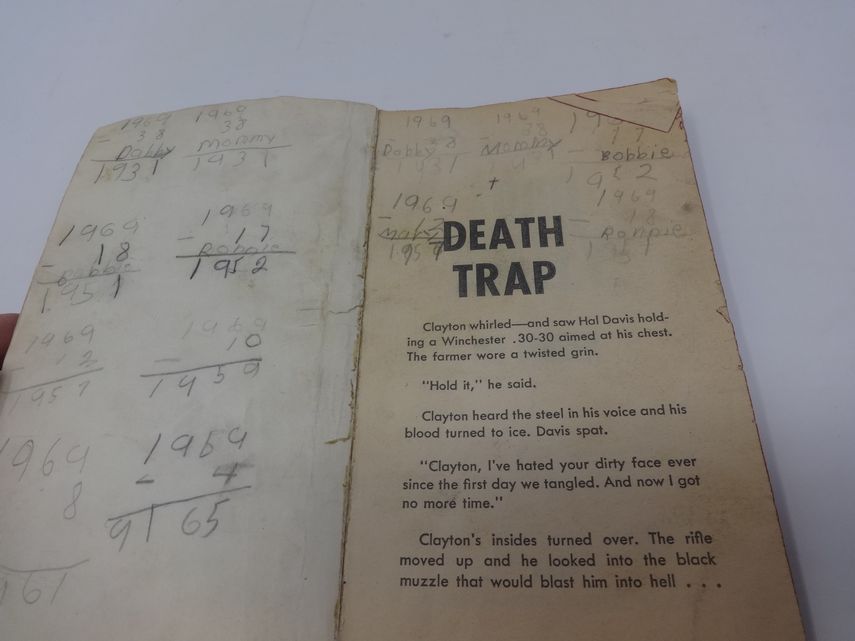 1969
- 38
Dabby
1931
1969
38
Mommy
1931
1969
- 18
1951
1969
- 17
Ronnie
1952
1969
- 12
1957
1969
- 10
1959
1969
8
161
1959
- 4
9165
1969
- 38
Dabby
1931
1969
- 38
Mommy
17
- Bobbie
1952
1969
-
1957
1969
- 18
Ronnie
+
DEATH
TRAP
Clayton whirled—and saw Hal Davis hold-
ing a Winchester .30-30 aimed at his chest.
The farmer wore a twisted grin.
"Hold it," he said.
Clayton heard the steel in his voice and his
blood turned to ice. Davis spat.
"Clayton, I've hated your dirty face ever
since the first day we tangled. And now I got
no more time."
Clayton's insides turned over. The rifle
moved up and he looked into the black
muzzle that would blast him into hell . . .